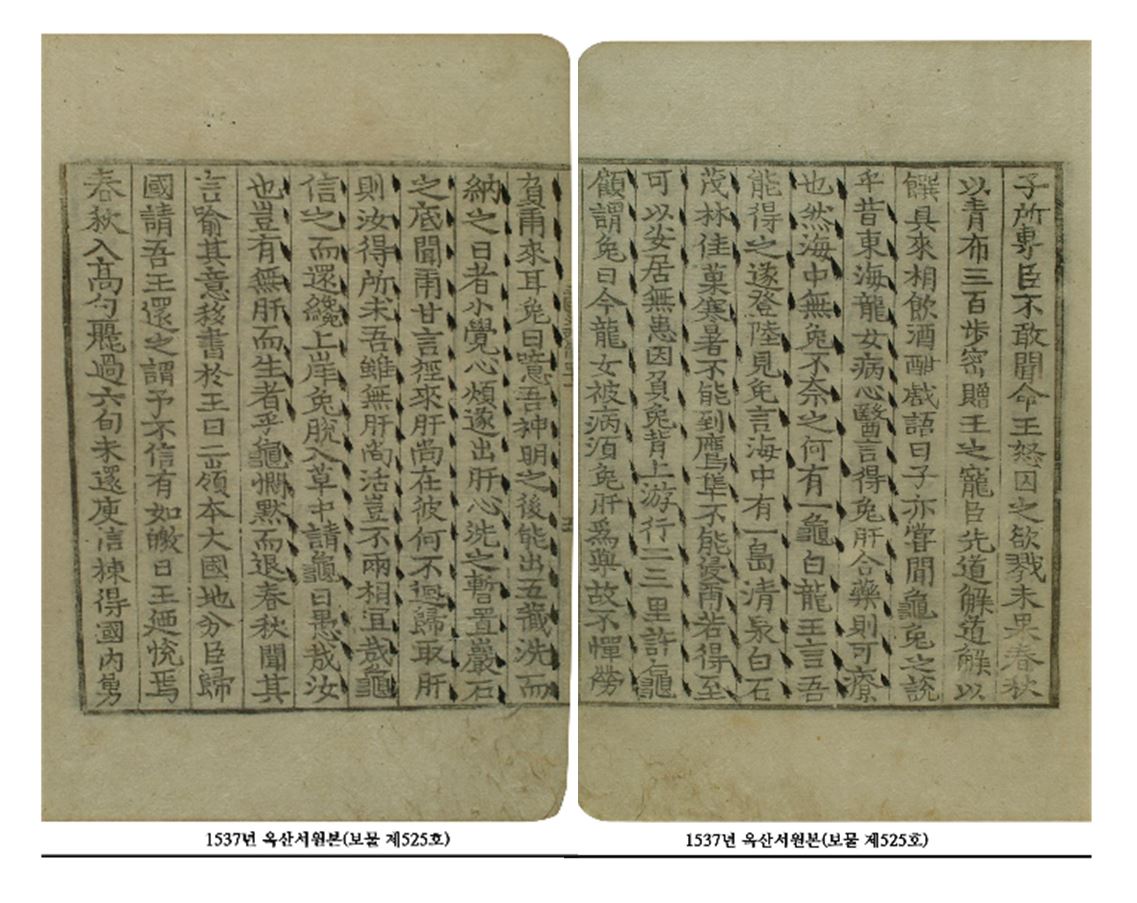 子所專臣不敢聞命王怒囚之欲戮未果春秋
以青布三百步密贈王之寵臣先道解道解以
饌具來相飮酒酣戱語曰子亦嘗聞龜兔之說
乎昔東海龍女病心醫言得兔肝合藥則可療
也然海中無兔不奈之何有一龜白龍王言吾
能得之遂登陸見兔言海中有一島淸泉白石
茂林佳菓寒暑不能到鷹隼不能侵爾若得至
可以安居無患因負兔背上游行二三里許龜
顧謂兔曰今龍女被病須兔肝爲藥故不憚勞
負爾來耳兔曰噫吾神明之後能出五藏洗而
納之日者小覺心煩遂出肝心洗之暫置巖石
之底聞爾甘言徑來肝尙在彼何不迴歸取肝
則汝得所求吾雖無肝尙活豈不兩相宜哉龜
信之而還纔上岸兔脫入草中謂龜曰愚哉汝
也豈有無肝而生者乎龜憫默而退春秋聞其
言喩其意移書於王曰二嶺本大國地分臣歸
國請吾王還之謂予不信有如皦日王迺悅焉
春秋入高句麗過六旬未還庾信揀得國內勇
1537년 옥산서원본(보물 제525호)
1537년 옥산서원본(보물 제525호)